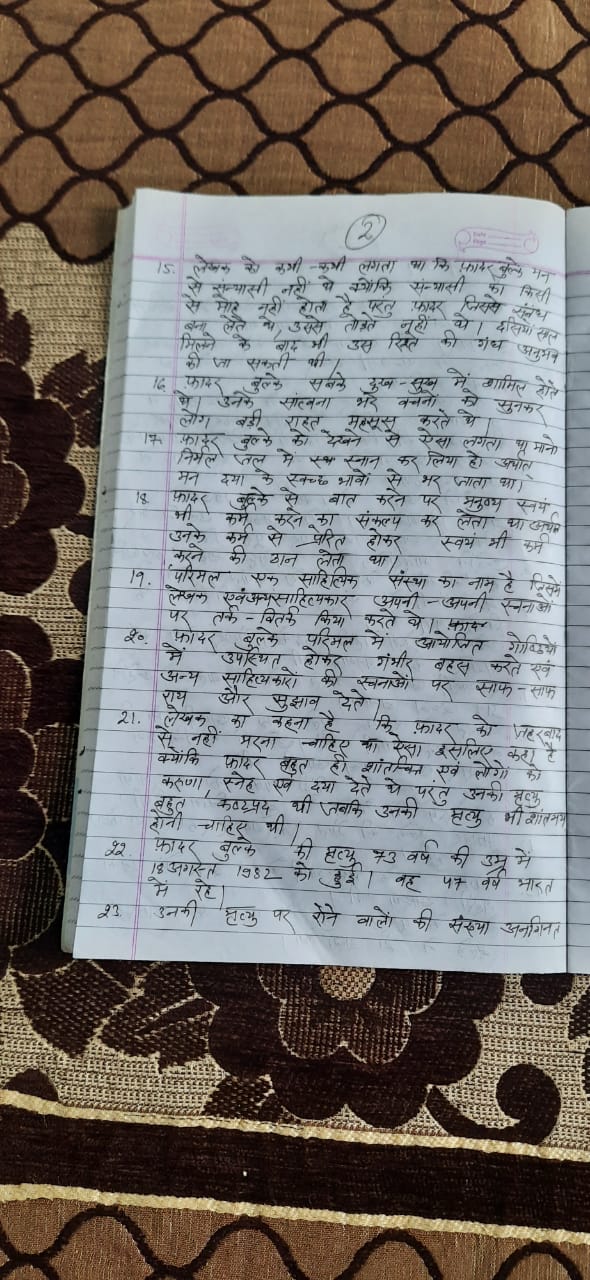 2
Date
Page
15. लेखक को कभी-कभी लगता था कि फ़ादर बुल्के मन
से संन्यासी नहीं थे क्योंकि सन्यासी का किसी
से मोह नहीं होता है परंतु फ़ादर जिससे संबंध
बना लेते थे, उससे तोड़ते नहीं थे। दसियों साल
मिलने के बाद भी उस रिश्ते की गंध अनुभव
की जा सकती थी।
16. फ़ादर बुल्के सबके दुख-सुख में शामिल होते
थे। उनके सांत्वना भरे वचनों को सुनकर
लोग बड़ी राहत महसूस करते थे।
17. फ़ादर बुल्के को देखने से ऐसा लगता था मानो
निर्मल जल में स्नान कर लिया हो अर्थात
मन दया के स्वच्छ भावों से भर जाता था।
18. फ़ादर बुल्के से बात करने पर मनुष्य स्वयं
भी कर्म करने का संकल्प कर लेता था अर्थात
उनके कर्म से प्रेरित होकर स्वयं भी कर्म
करने की ठान लेता था।
19. परिमल एक साहित्यिक संस्था का नाम है जिसमें
लेखक एवं अन्य साहित्यकार अपनी-अपनी रचनाओं
पर तर्क-वितर्क किया करते थे।
20. फ़ादर बुल्के परिमल में आयोजित गोष्ठियों
में उपस्थित होकर गंभीर बहस करते एवं
अन्य साहित्यकारों की रचनाओं पर साफ-साफ
राय और सुझाव देते।
21. लेखक का कहना है कि फ़ादर को ज़हरबाद
से नहीं मरना चाहिए था ऐसा इसलिए कहा है
क्योंकि फ़ादर बहुत ही शांतचित्त एवं लोगों को
करुणा, स्नेह एवं दया देते थे परंतु उनकी मृत्यु
बहुत कष्टप्रद थी जबकि उनकी मृत्यु भी शांतमय
होनी चाहिए थी।
22. फ़ादर बुल्के की मृत्यु 73 वर्ष की उम्र में
18 अगस्त 1982 को हुई। वह 47 वर्ष भारत
में रहे।
23. उनकी मृत्यु पर रोने वालों की संख्या अनगिनत